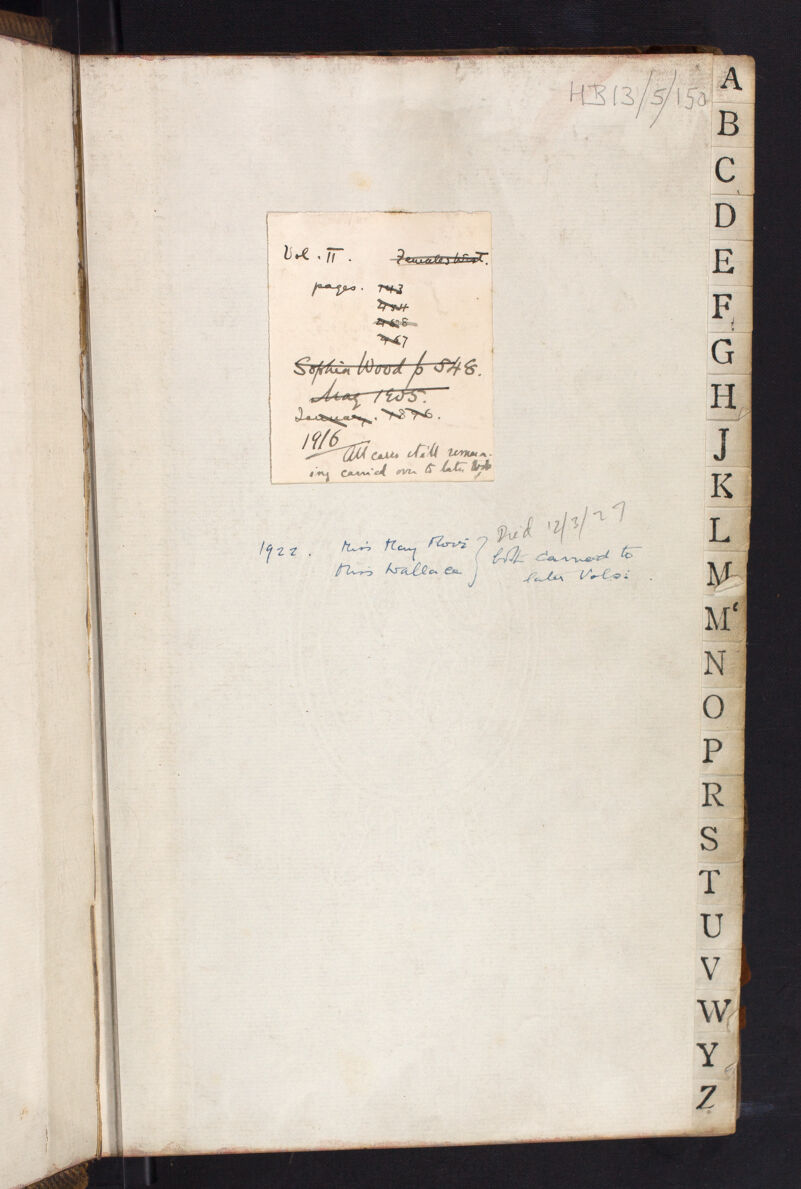 HB13/5/150
Vol. II. Females West.
pages. 743
967
Sophia Wood p 548.
May 1905.
January. 1896.
1916
All cases still remain-
ing carried over to later
Died 12/3/27
1922. Miss May
Miss Wallace } both carried to
later Vols.
A
B
C
D
E
F
G
H
J
K
L
M
Mc
N
O
P
R
S
T
U
V
W
Y
Z